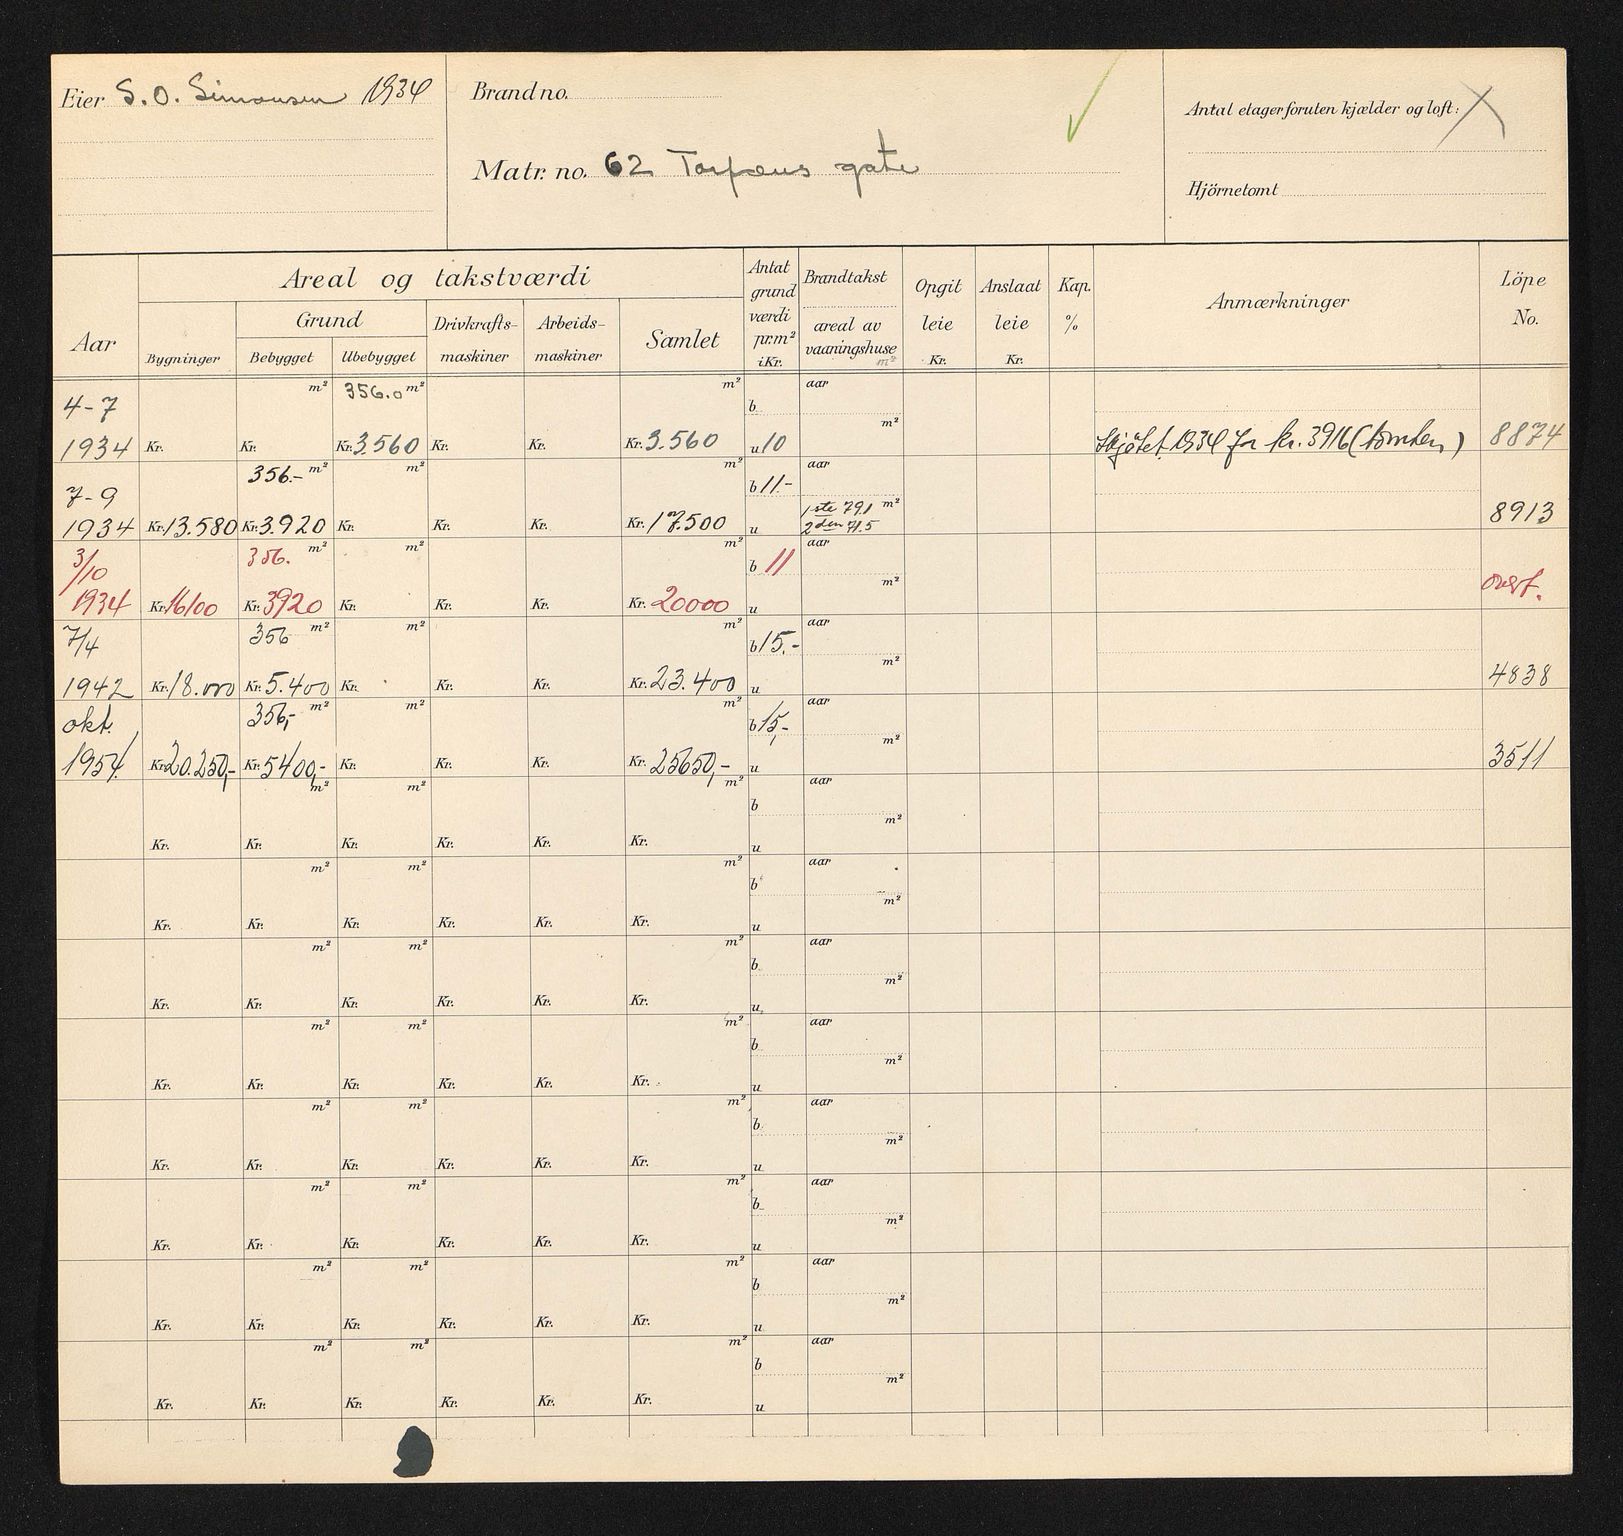 Eier S. O. Simonsen 1934
Brand no.
Matr. no. 62 Torfæus gate
Antal etager foruten kjælder og loft:
Hjörnetomt
Aar
Areal og takstværdi
Bygninger
Grund
Bebygget Ubebygget
Drivkrafts-
maskiner
Arbeids-
maskiner
Samlet
Antat
grund
værdi
pr.m²
i Kr.
Brandtakst
areal av
vaaningshuse
m²
Opgit
leie
Kr.
Anslaat
leie
Kr.
Kap.
%
Anmærkninger
Löpe
No.
m² 356.0 m² m² aar
4-7 b
m²
1934 Kr. Kr. Kr. 3.560 Kr. Kr. Kr. 3.560 u 10 Skjötet 1934 for kr. 3916 (tomten) 8874
356.- m² m² m² aar
7-9 b 11.-
1ste 79.1 m²
1934 Kr. 13.580 Kr. 3.920 Kr. Kr. Kr. Kr. 17.500 u 2den 71.5 8913
356. m² m² m² aar
3/10 b 11
m² overf.
1934 Kr. 16100 Kr. 3920 Kr. Kr. Kr. Kr. 20000 u
356 m² m² m² aar
7/4 b 15.-
m²
1942 Kr. 18.000 Kr. 5.400 Kr. Kr. Kr. Kr. 23.400 u 4838
356,- m² m² m² aar
okt. b 15,-
m²
1954 Kr. 20.250,- Kr. 5400,- Kr. Kr. Kr. Kr. 25650,- u 3511
m² m² m² aar
b
m²
Kr. Kr. Kr. Kr. Kr. Kr. u
m² m² m² aar
b
m²
Kr. Kr. Kr. Kr. Kr. Kr. u
m² m² m² aar
b
m²
Kr. Kr. Kr. Kr. Kr. Kr. u
m² m² m² aar
b
m²
Kr. Kr. Kr. Kr. Kr. Kr. u
m² m² m² aar
b
m²
Kr. Kr. Kr. Kr. Kr. Kr. u
m² m² m² aar
b
m²
Kr. Kr. Kr. Kr. Kr. Kr. u
m² m² m² aar
b
m²
Kr. Kr. Kr. Kr. Kr. Kr. u
m² m² m² aar
b
m²
Kr. Kr. Kr. Kr. Kr. Kr. u